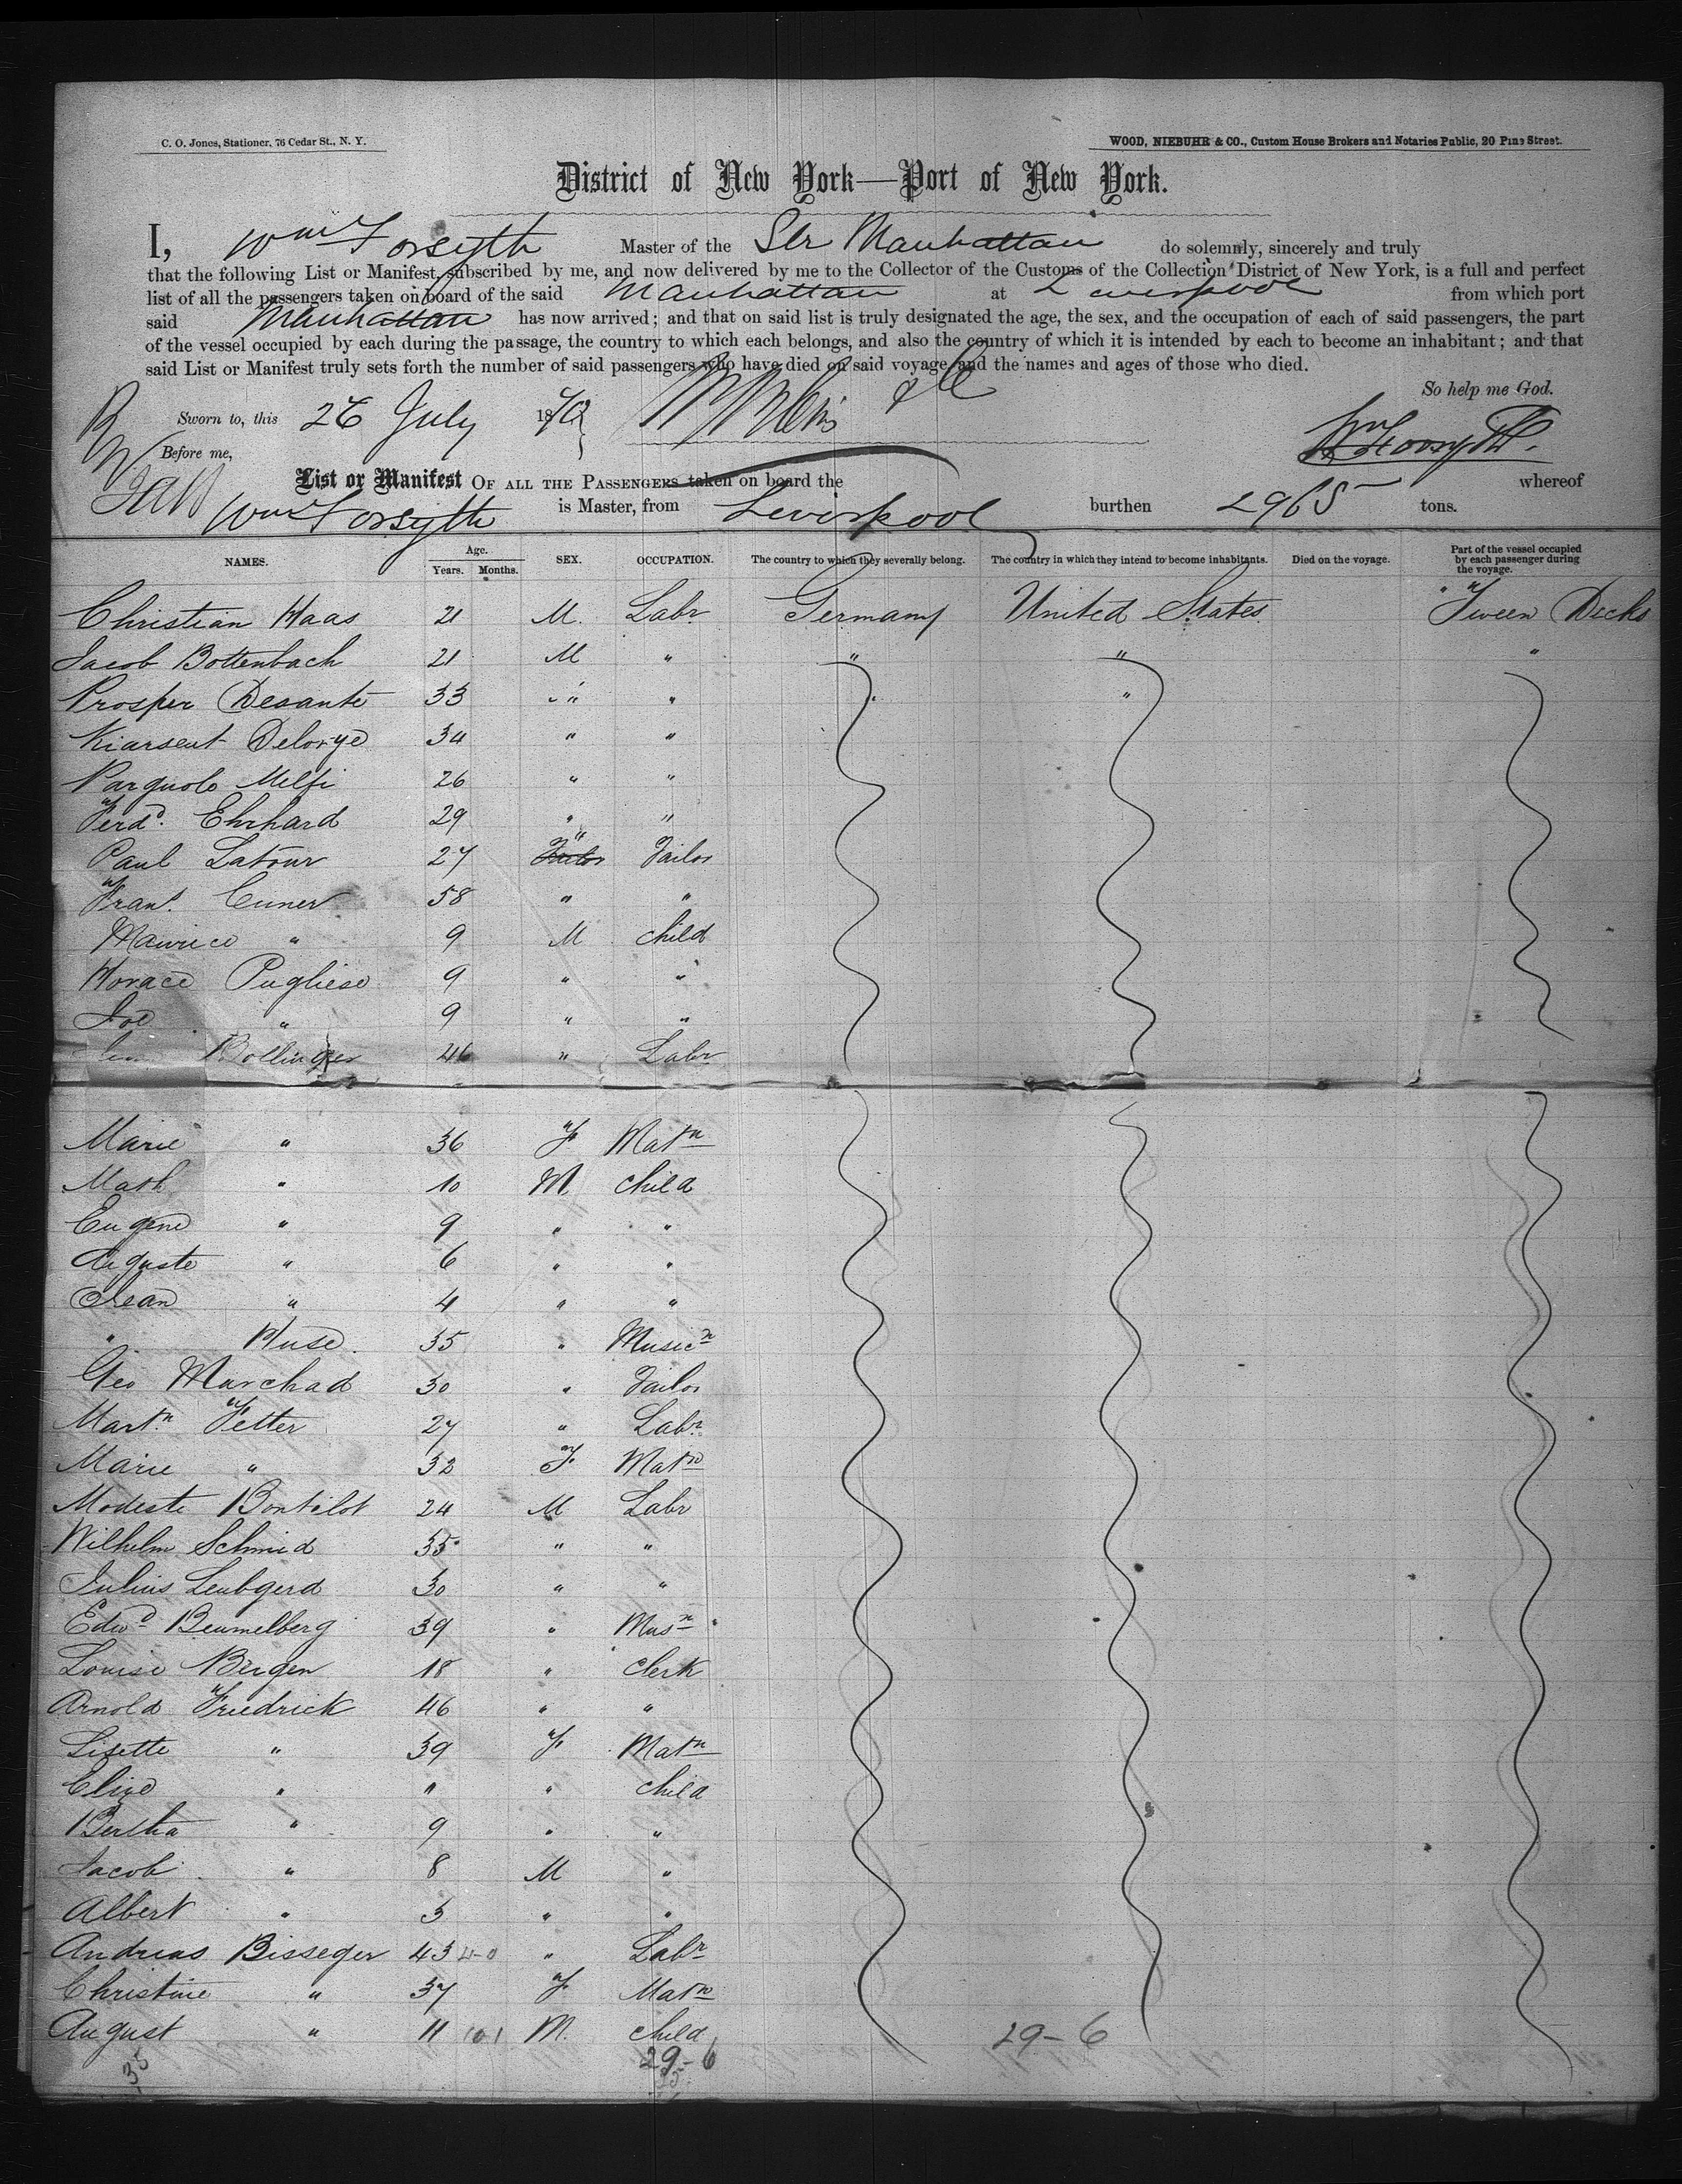 C. O. Jones, Stationer, 76 Cedar St., N. Y.
WOOD, NIEBUHR & CO., Custom House Brokers and Notaries Public, 20 Pine Street.
District of New York—Port of New York.
I, Wm Forsyth Master of the Str Manhattan do solemnly, sincerely and truly
that the following List or Manifest, subscribed by me, and now delivered by me to the Collector of the Customs of the Collection District of New York, is a full and perfect
list of all the passengers taken on board of the said Manhattan at Liverpool from which port
said Manhattan has now arrived; and that on said list is truly designated the age, the sex, and the occupation of each of said passengers, the part
of the vessel occupied by each during the passage, the country to which each belongs, and also the country of which it is intended by each to become an inhabitant; and that
said List or Manifest truly sets forth the number of said passengers who have died on said voyage, and the names and ages of those who died.
So help me God.
Sworn to, this 26 July 1870
Wm Forsyth.
Before me,
List or Manifest OF ALL THE PASSENGERS taken on board the whereof
Wm Forsyth is Master, from Liverpool burthen 2965 tons.
NAMES. Age. Years. Months. SEX. OCCUPATION. The country to which they severally belong. The country in which they intend to become inhabitants. Died on the voyage. Part of the vessel occupied by each passenger during the voyage.
Christian Haas 21 M. Labr Germany United States Tween Decks
Jacob Bottenbach 21 M " " " "
Prosper Desante 33 " " "
Kiarseut Delorye 34 " "
Parquolo Melfi 26 " "
Ferdd. Ehrhard 29 " "
Paul Latour 27 " Tailor Tailor
Frans. Cuner 58 " "
Maurice " 9 M child
Horace Pugliese 9 " "
Joe " 9 " "
Bollinger 46 " Labr
Marie " 36 F Matn
Math " 10 M child
Eugene " 9 " "
Auguste " 6 " "
Jean " 4 " "
" Huse 35 " Musicn
Geo Marchad 30 " Tailor
Martn. Fetter 27 " Labr.
Marie " 32 F Matn
Modeste Bontilot 24 M Labr
Wilhelm Schmid 35 " "
Julius Leubgerd 30 " "
Edwd Beumelberg 39 " Musn
Louise Bergen 18 " Clerk
Arnold Friedrick 46 " "
Lisette " 39 F Matn
Elize " " " child
Bertha " 9 " "
Jacob " 8 M "
Albert " 3 " "
Andreas Bisseger 43 4-0 " Labr
Christine " 37 F Matn
August " 11 101 M. child
29-6
35 29-6